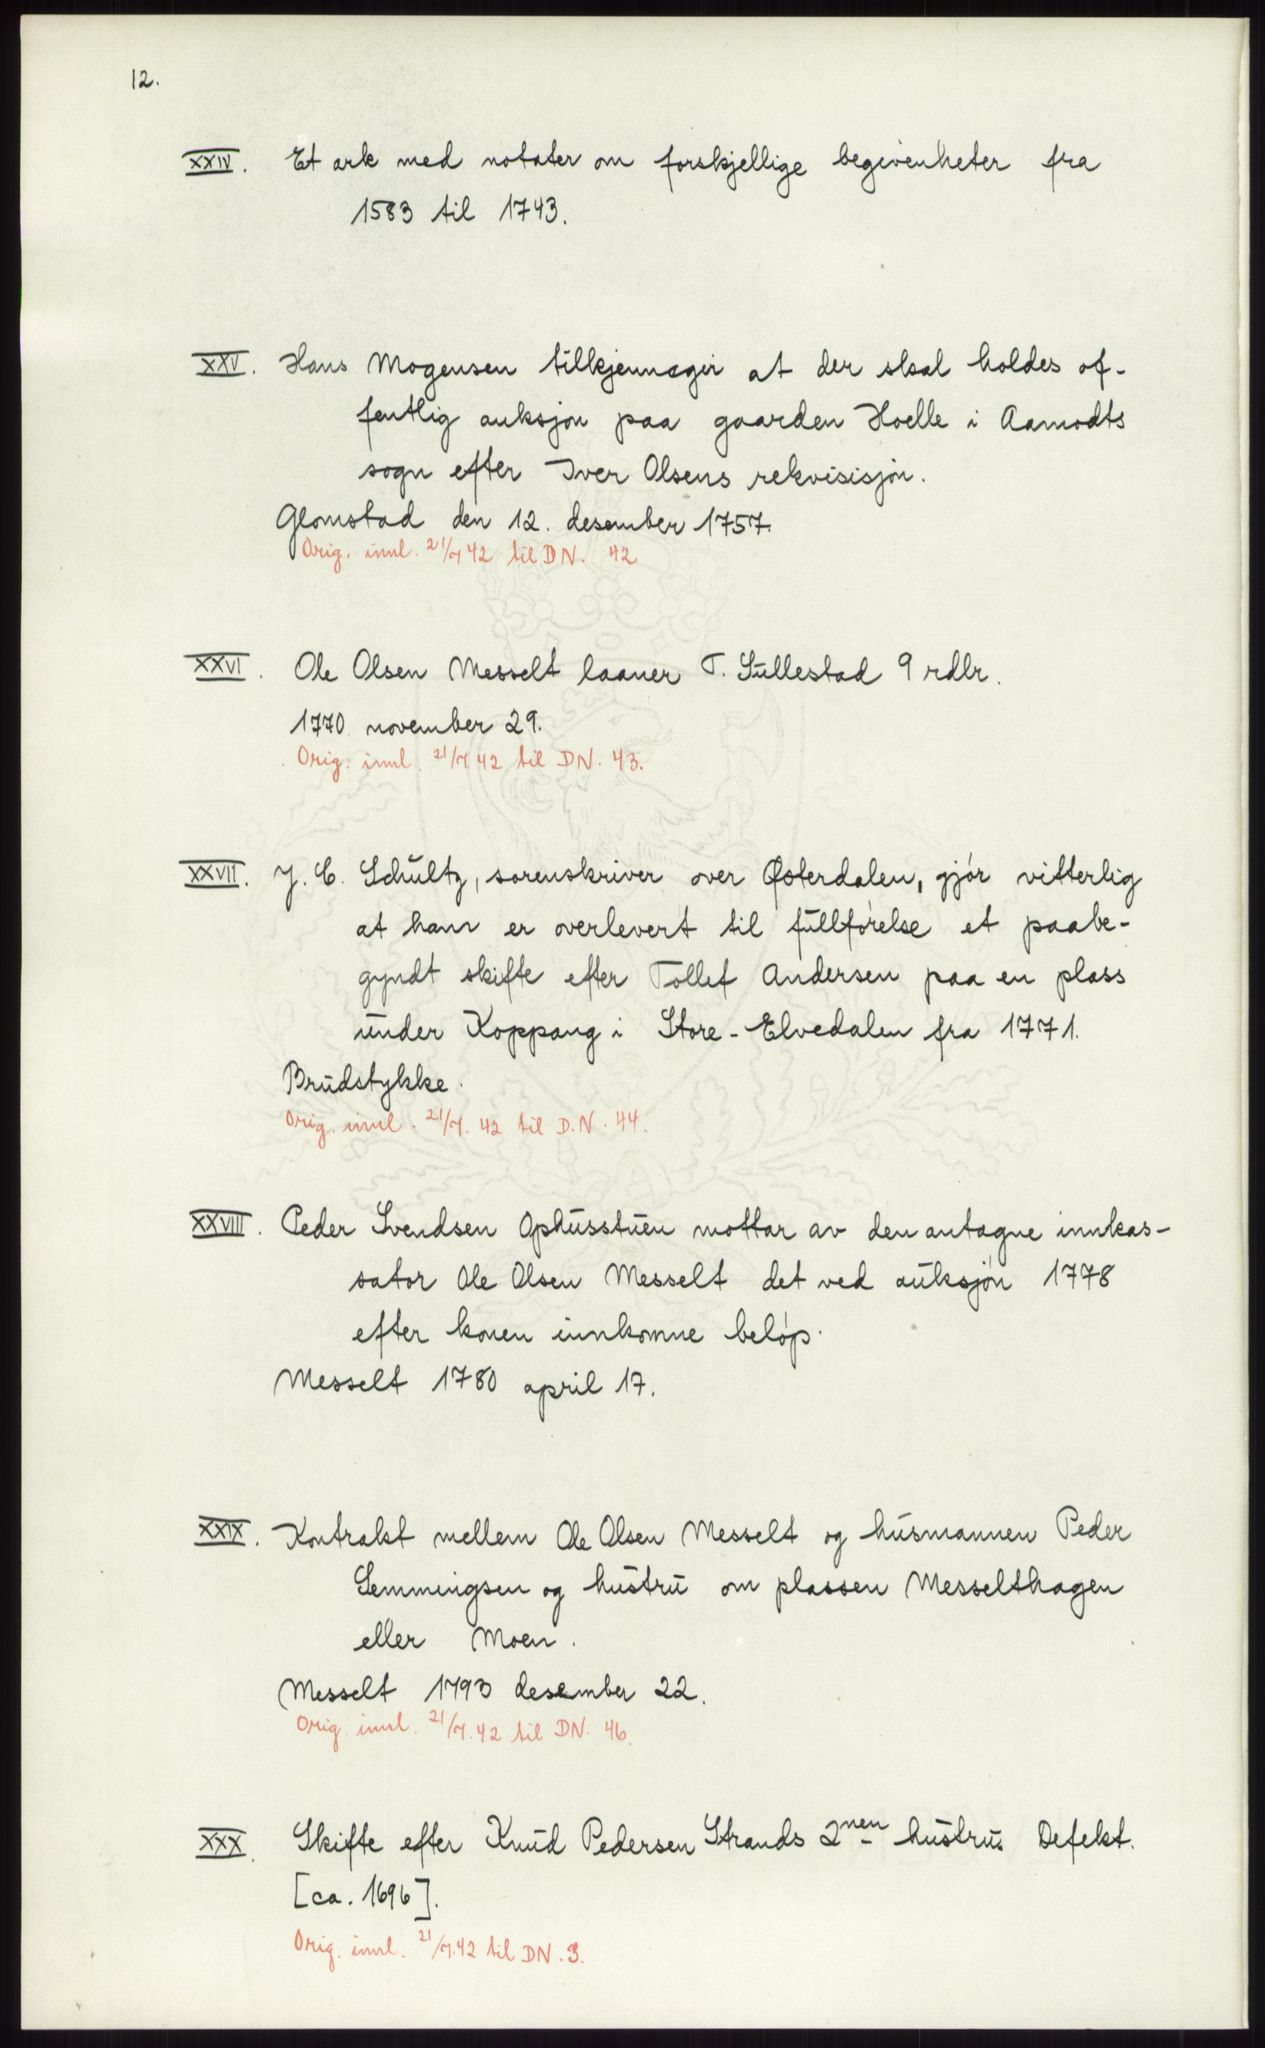 12.
XXIV. Et ark med notater om forskjellige begivenheter fra
1583 til 1743.
XXV. Hans Mogensen tilkjennegir at der skal holdes of-
fentlig auksjon paa gaarden Hoelle i Aamodts
sogn efter Iver Olsens rekvisisjon.
Glomstad den 12. desember 1757.
Orig. innl. 21/7 42 til DN. 42
XXVI. Ole Olsen Messelt laaner T. Sullestad 9 rdlr.
1770 november 29.
Orig. innl. 21/7 42 til DN. 43.
XXVII. J. C. Schultz, sorenskriver over Østerdalen, gjør vitterlig
at han er overlevert til fullførelse et paabe-
gyndt skifte efter Tollef Andersen paa en plass
under Koppang i Store-Elvedalen fra 1771.
Brudstykke.
Orig. innl. 21/7. 42 til D.N. 44.
XXVIII. Peder Svendsen Ophusstuen mottar av den antagne innkas-
sator Ole Olsen Messelt det ved auksjon 1778
efter konen innkomne beløp.
Messelt 1780 april 17.
XXIX. Kontrakt mellem Ole Olsen Messelt og husmannen Peder
Semmingsen og hustru om plassen Messelthagen
eller Moen.
Messelt 1793 desember 22.
Orig. innl. 21/7. 42 til DN. 46.
XXX. Skifte efter Knud Pedersen Strands 2nen hustru. Defekt.
[ca. 1696].
Orig. innl. 21/7.42 til DN. 3.